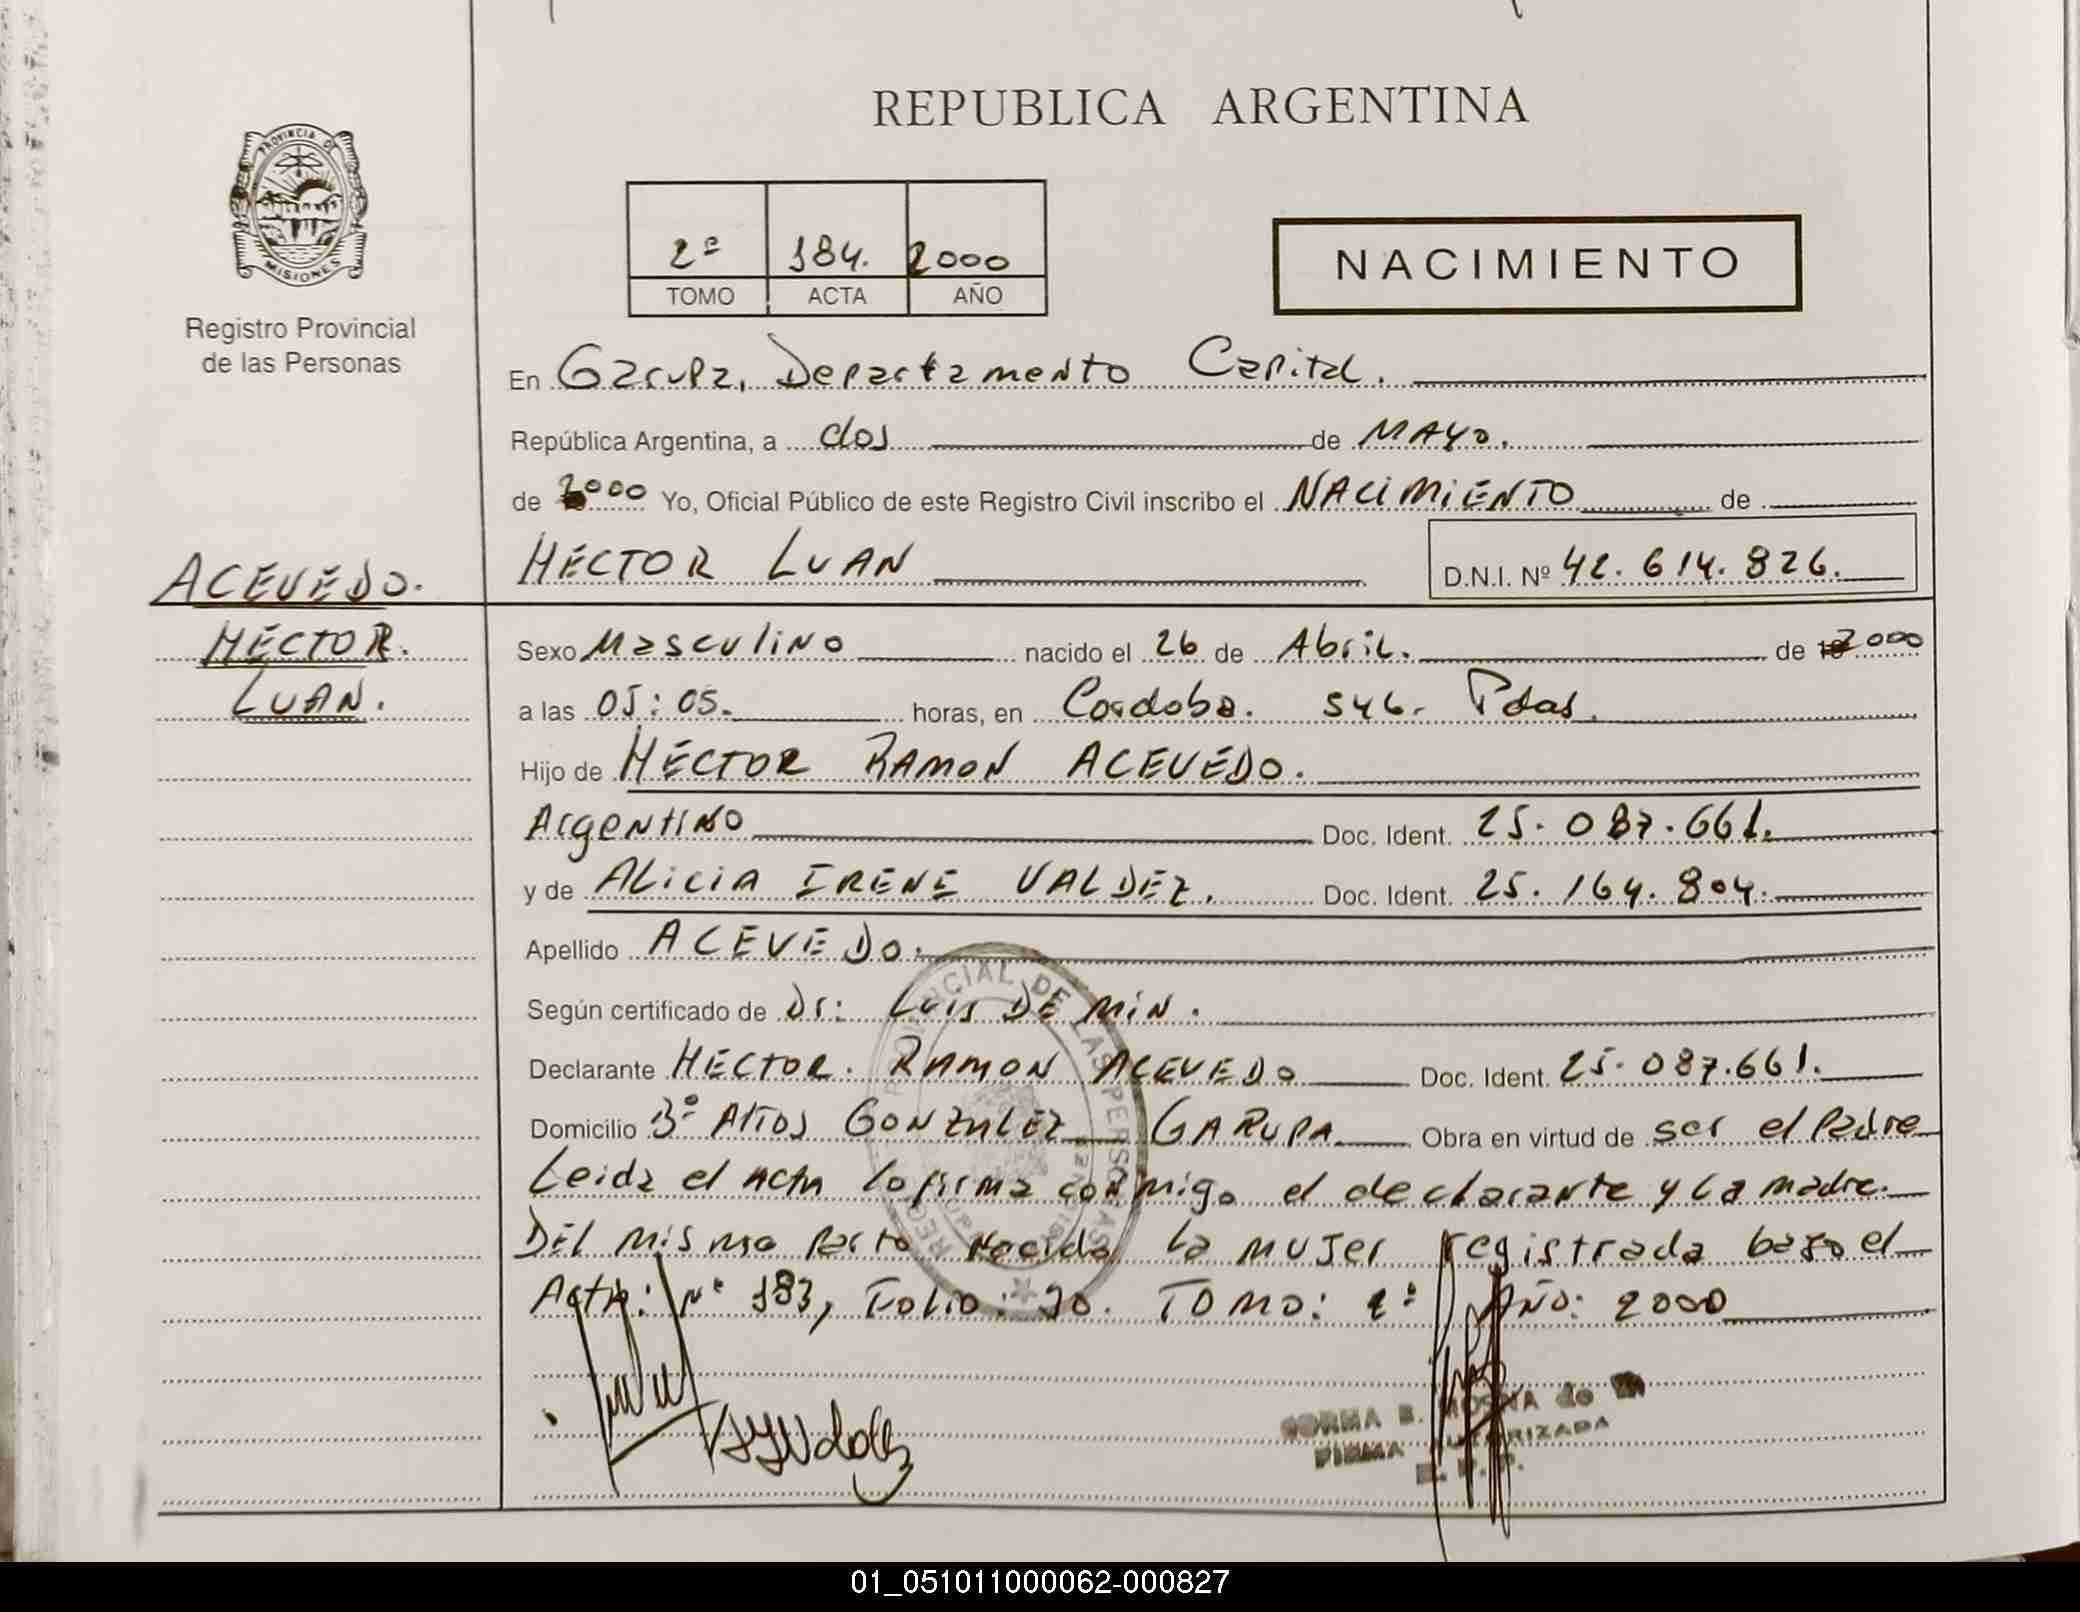 REPUBLICA ARGENTINA
PROVINCIA DE
MISIONES
Registro Provincial
de las Personas
2º 184. 2000
TOMO ACTA AÑO
NACIMIENTO
En Garupa, Departamento Capital.
República Argentina, a dos de MAYO.
de 2000 Yo, Oficial Público de este Registro Civil inscribo el NACIMIENTO de
HECTOR LUAN D.N.I. Nº 42.614.826.
ACEVEDO.
HECTOR.
LUAN.
Sexo Masculino nacido el 26 de Abril. de 2000
a las 05:05. horas, en Cordoba. 546. Pdas.
Hijo de HECTOR RAMON ACEVEDO.
Argentino Doc. Ident. 25.087.661.
y de ALICIA IRENE VALDEZ. Doc. Ident. 25.164.804.
Apellido ACEVEDO.
Según certificado de Dr: LUIS DE MIN.
Declarante HECTOR. RAMON ACEVEDO Doc. Ident. 25.087.661.
Domicilio Bº Altos GONZALEZ GARUPA Obra en virtud de ser el Padre
Leida el acta la firma conmigo el declarante y la madre.
Del mismo parto nacida la mujer registrada bajo el
Acta: Nº 183, Folio: 90. TOMO: 2º AÑO: 2000
REG PROVINCIAL DE LAS PERSONAS
B. de
FIRMA AUTORIZADA
R. P. P.
01_051011000062-000827